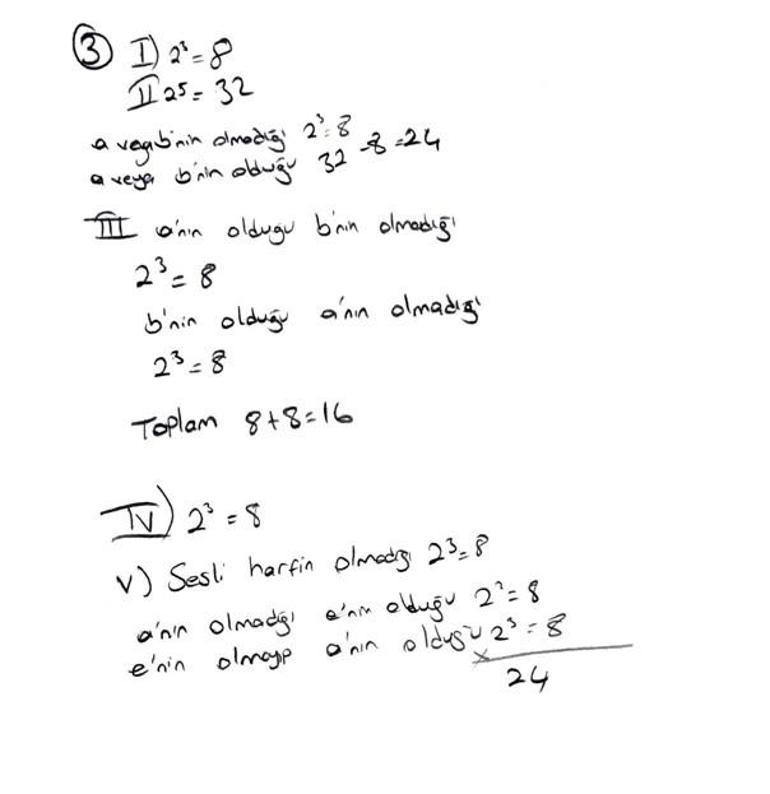 ③ I) 2³ = 8
II 2⁵ = 32
a veya b'nin olmadığı 2³ = 8
a veya b'nin olduğu 32 - 8 = 24
III a'nın olduğu b'nin olmadığı
2³ = 8
b'nin olduğu a'nın olmadığı
2³ = 8
Toplam 8+8=16
IV) 2³ = 8
V) Sesli harfin olmadığı 2³ = 8
a'nın olmadığı e'nin olduğu 2³ = 8
e'nin olmayıp a'nın olduğu 2³ = 8
24